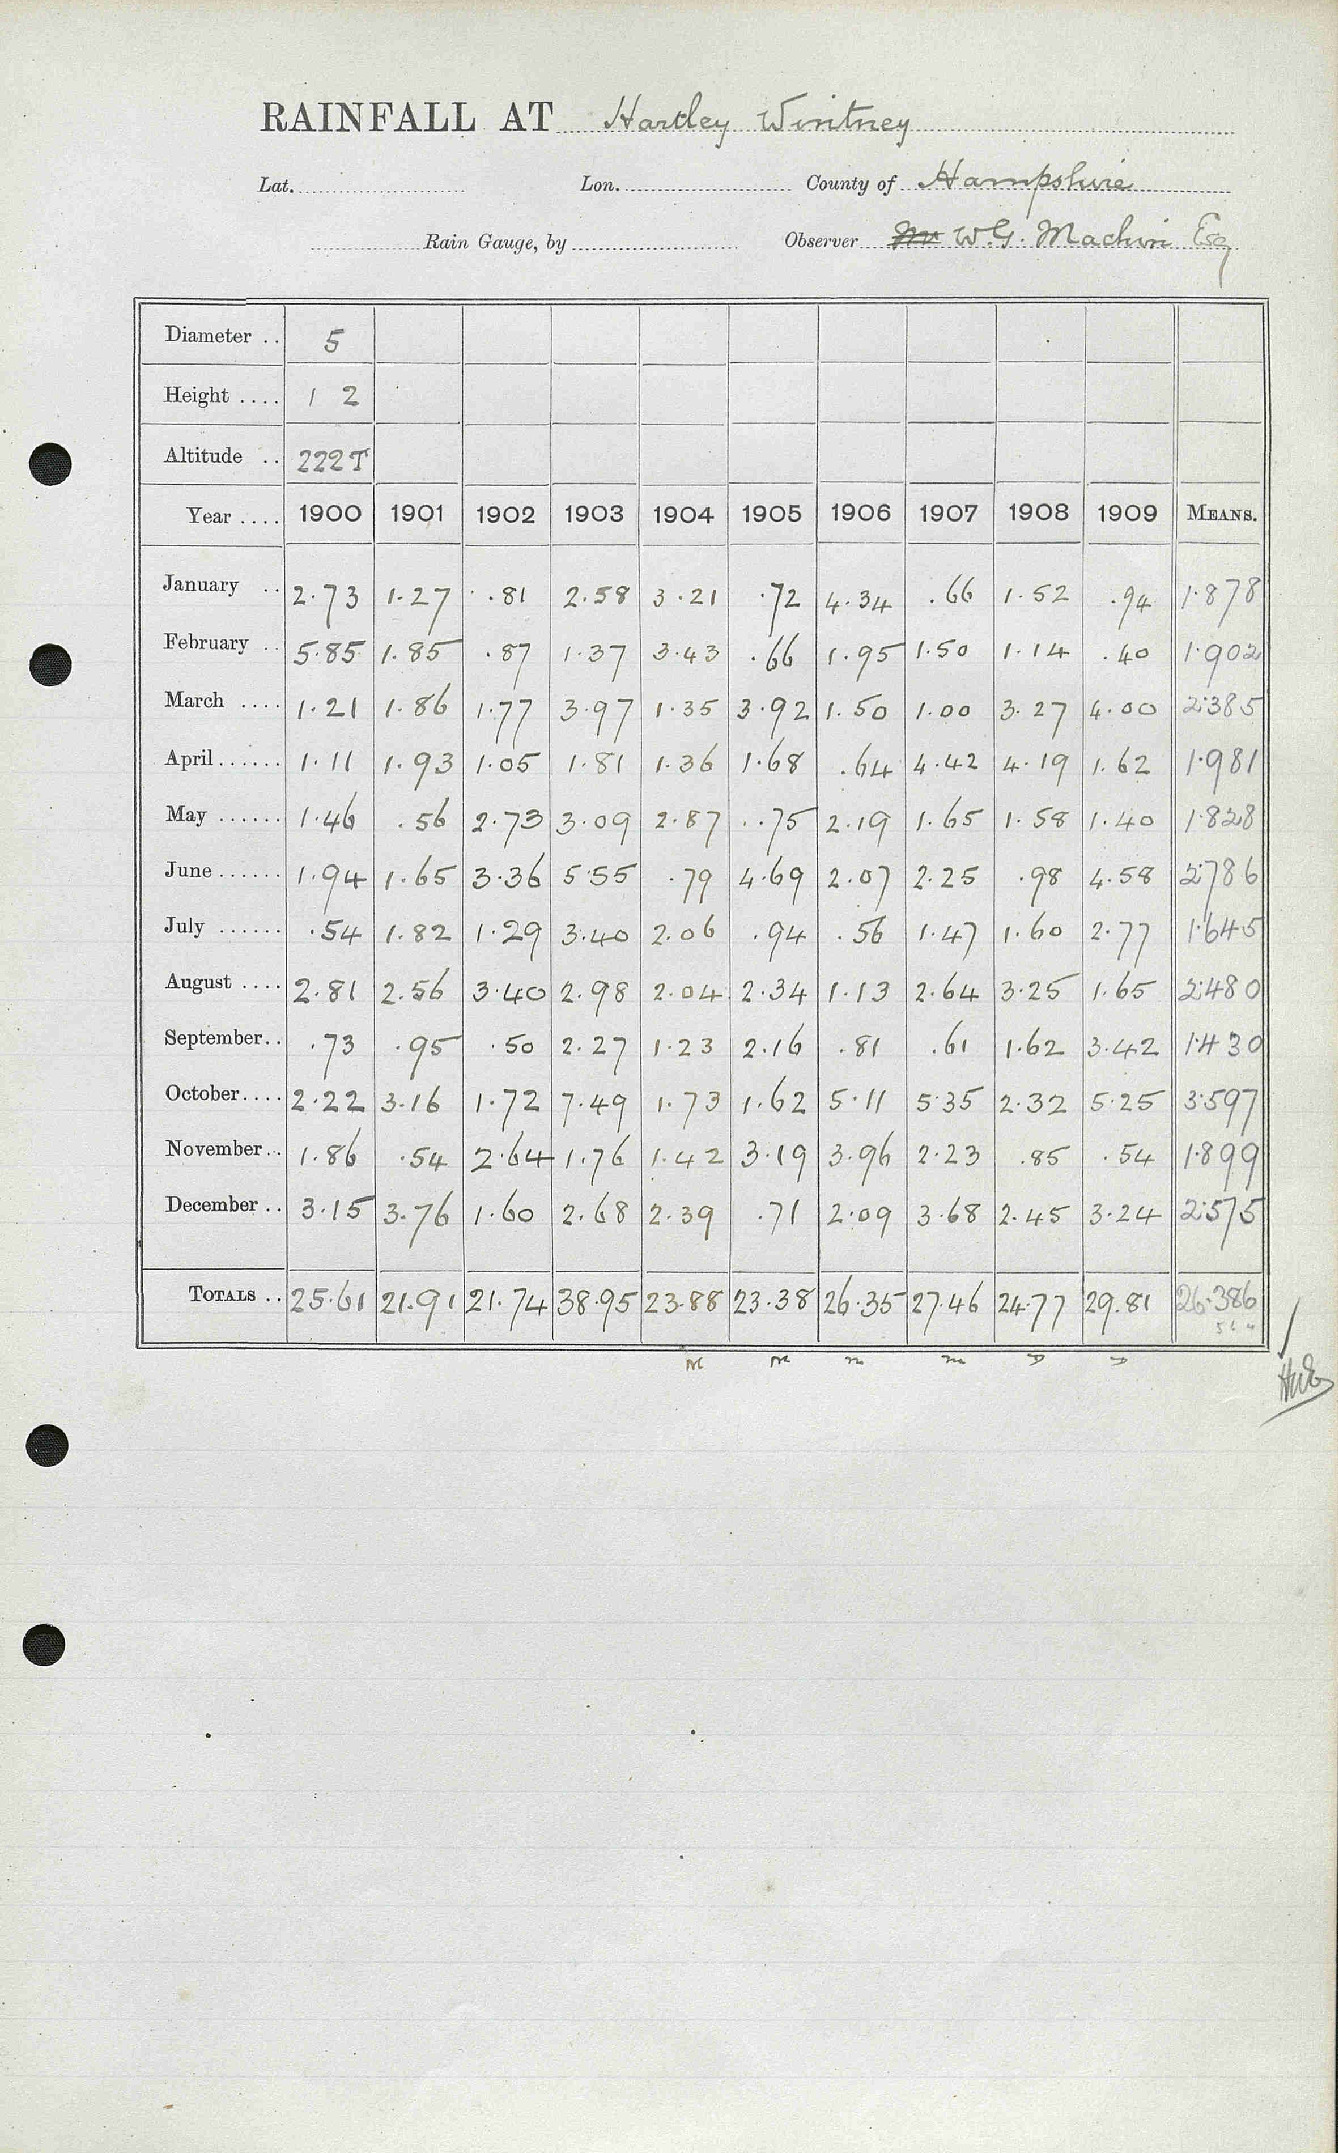 RAINFALL AT Hartley Wintney
Lat. Lon. County of Hampshire
Rain Gauge, by Observer Mr W.G. Machin Esq
Diameter .. 5
Height .... 1 2
Altitude .. 222T
Year .... 1900 1901 1902 1903 1904 1905 1906 1907 1908 1909 MEANS.
January .. 2.73 1.27 .81 2.58 3.21 .72 4.34 .66 1.52 .94 1.878
February .. 5.85 1.85 .87 1.37 3.43 .66 1.95 1.50 1.14 .40 1.902
March .... 1.21 1.86 1.77 3.97 1.35 3.92 1.50 1.00 3.27 4.00 2.385
April...... 1.11 1.93 1.05 1.81 1.36 1.68 .64 4.42 4.19 1.62 1.981
May ...... 1.46 .56 2.73 3.09 2.87 .75 2.19 1.65 1.58 1.40 1.828
June...... 1.94 1.65 3.36 5.55 .79 4.69 2.07 2.25 .98 4.58 2.786
July ...... .54 1.82 1.29 3.40 2.06 .94 .56 1.47 1.60 2.77 1.645
August .... 2.81 2.56 3.40 2.98 2.04 2.34 1.13 2.64 3.25 1.65 2.480
September.. .73 .95 .50 2.27 1.23 2.16 .81 .61 1.62 3.42 1.430
October.... 2.22 3.16 1.72 7.49 1.73 1.62 5.11 5.35 2.32 5.25 3.597
November.. 1.86 .54 2.64 1.76 1.42 3.19 3.96 2.23 .85 .54 1.899
December .. 3.15 3.76 1.60 2.68 2.39 .71 2.09 3.68 2.45 3.24 2.575
TOTALS .. 25.61 21.91 21.74 38.95 23.88 23.38 26.35 27.46 24.77 29.81 26.386